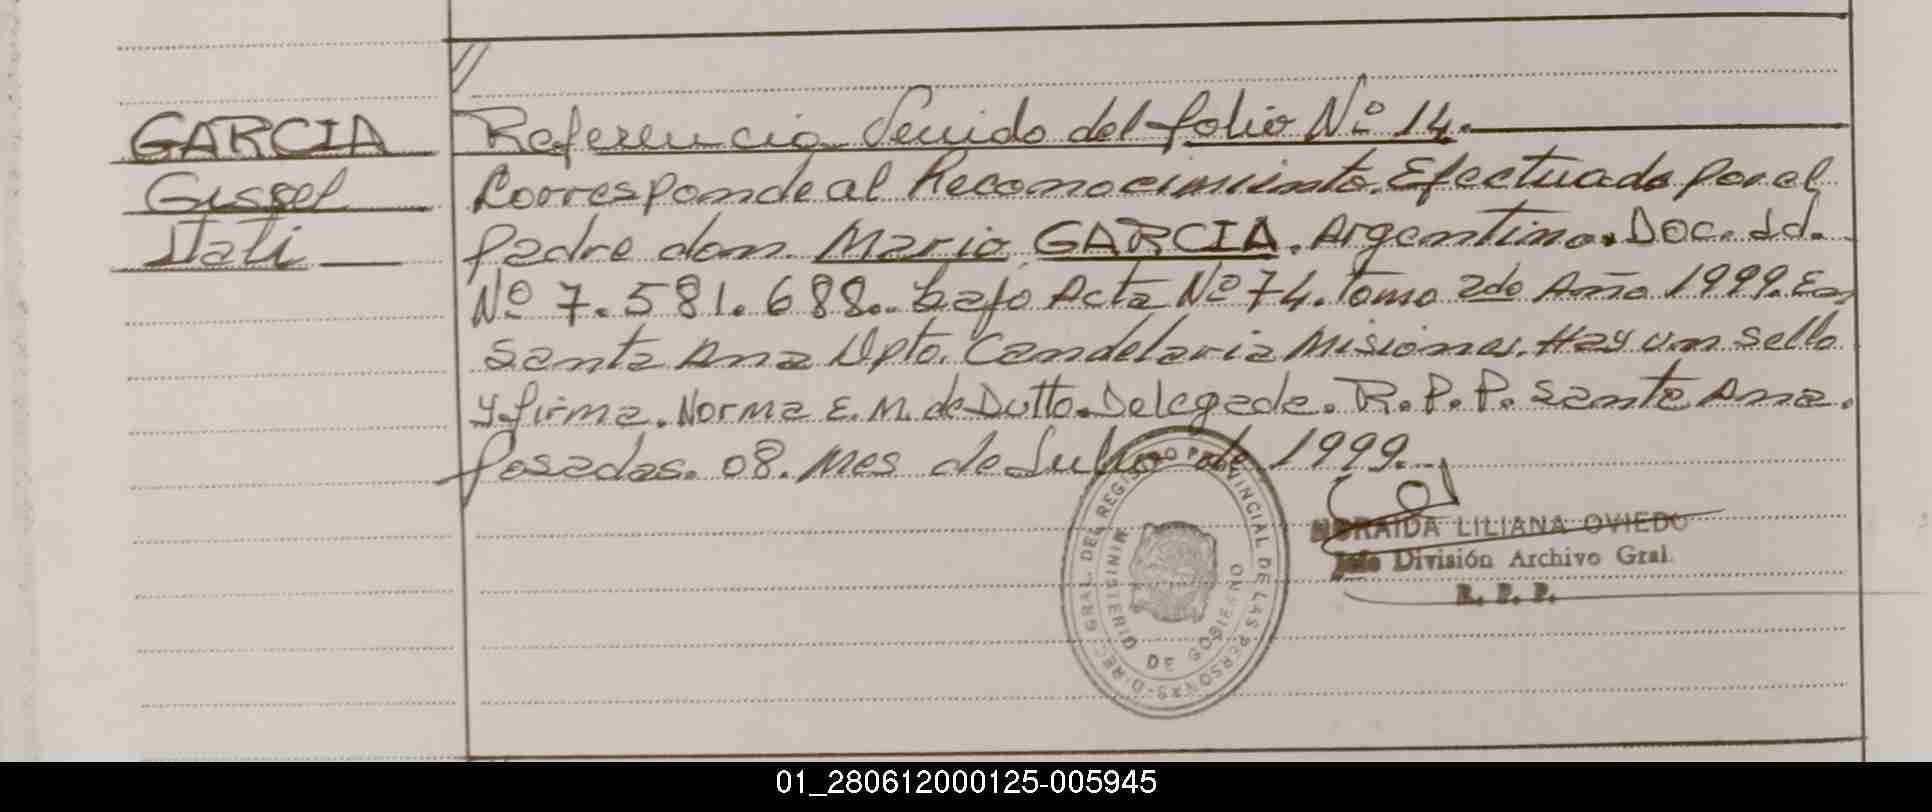 GARCIA
Gissel
Itati
Referencia Venido del folio Nº 14.
Corresponde al Reconocimiento. Efectuado por el
padre don. Mario GARCIA. Argentino. Doc. Id.
Nº 7.581.688. bajo Acta Nº 74. Tomo 2do Año 1999. En
Santa Ana Dpto. Candelaria Misiones. Hay un sello
y firma. Norma E. M. de Dutto. Delegada. R.P.P. Santa Ana.
Posadas. 08. Mes de Julio de 1999.
DIREC. GRAL. DEL REGISTRO PROVINCIAL DE LAS PERSONAS
MINISTERIO DE GOBIERNO
NORAIDA LILIANA OVIEDO
Jefe División Archivo Gral.
R. P. P.
01_280612000125-005945